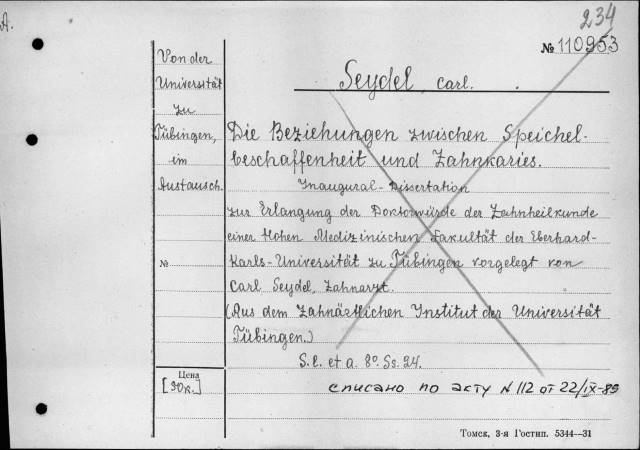 A.
234
№ 110953
Von der
Universität
zu
Tübingen,
im
Austausch.
№
Цена
[30к.]
Seydel, Carl.
Die Beziehungen zwischen Speichel-
beschaffenheit und Zahnkaries.
Inaugural-Dissertation
zur Erlangung der Doktorwürde der Zahnheilkunde
einer Hohen Medizinischen Fakultät der Eberhard-
Karls-Universität zu Tübingen vorgelegt von
Carl Seydel, Zahnarzt.
(Aus dem Zahnärtlichen Institut der Universität
Tübingen.)
S.l. et a. 8º. Ss. 24.
списано по акту N 112 от 22/IX-89
Томск, 3-я Гостип. 5344—31